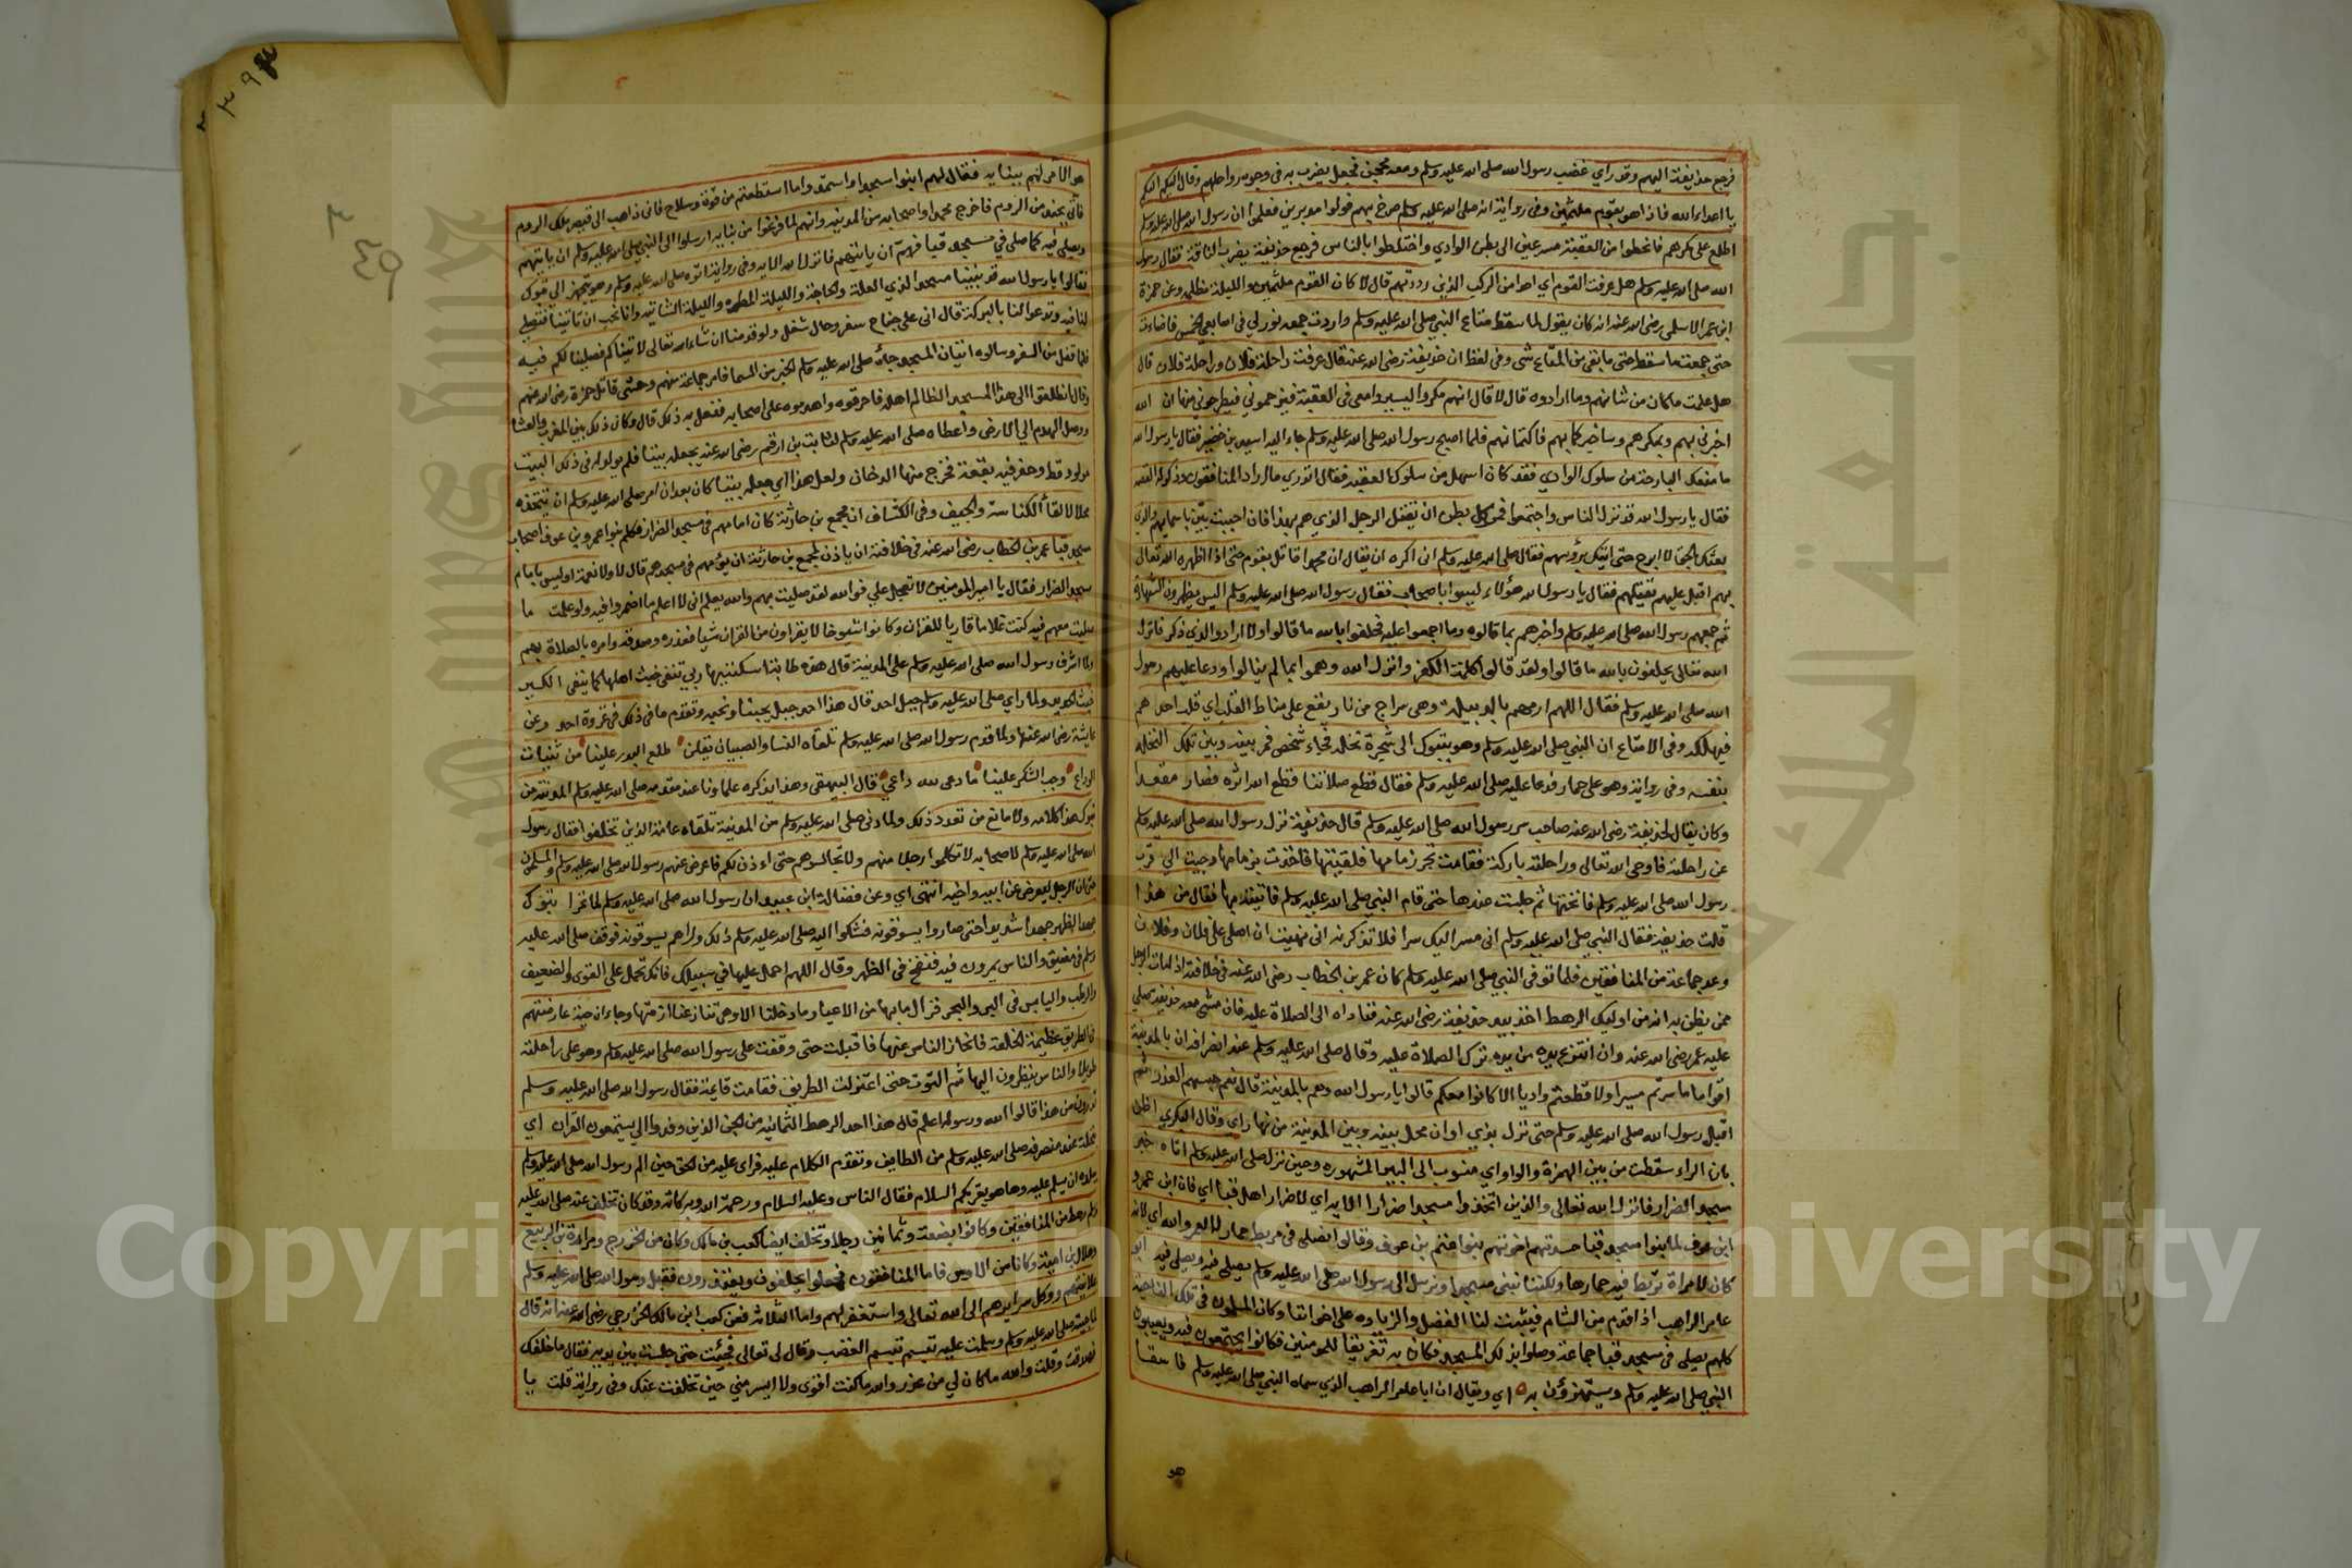 فرجع حذيفة اليهم وقد راي غضب رسول الله صلى الله عليه وسلم ومعه محجن فجعل يضرب به في وجوه رواحلهم وقال اليكم اليكم
يا اعداء الله فاذا هو بقوم ملثمين وفي رواية انه صلى الله عليه وسلم صرخ بهم فولوا مدبرين فعلموا ان رسول الله صلى الله عليه وسلم
اطلع على مكرهم فانحطوا من العقبة مسرعين الى بطن الوادي واختلطوا بالناس فرجع حذيفة يضرب الناقة فقال رسول
الله صلى الله عليه وسلم هل عرفت القوم اي احدا من الركب الذين رددتهم قال لا كان القوم ملثمين والليلة مظلمه وعن حمزة
ابن عمر الاسلمي رضي الله عنه انه كان يقول لما سقط متاع النبي صلى الله عليه وسلم واردت جمعه نور لي في اصابعي الخمس فاضاءت
حتى جمعت ما سقط حتى ما بقي من المتاع شي وفي لفظ ان حذيفة رضي الله عنه قال عرفت راحلة فلان وراحلة فلان قال
هل علمت ما كان من شانهم وما ارادوه قال لا قال انهم مكروا ليسيروا معي في العقبة فيزحموني فيطرحوني منها ان الله
اخبرني بهم وبمكرهم وساخبركما بهم فاكتماهم فلما اصبح رسول الله صلى الله عليه وسلم جاء اليه اسيد بن حضير فقال يا رسول الله
ما منعك البارحة من سلوك الوادي فقد كان اسهل من سلوك العقبه فقال اتدري ما اراد المنافقون وذكر له القصه
فقال يا رسول الله قد نزل الناس واجتمعوا فمر كل بطن ان يقتل الرجل الذي هم بهذا فان احببت بين باسمايهم والذي
بعثك بالحق لا ابرح حتى اتيك برؤسهم فقال صلى الله عليه وسلم اني اكره ان يقال ان محمدا قاتل بقوم حتى اذا اظهره الله تعالى
بهم اقبل عليهم يقتلهم فقال يا رسول الله هؤلاء ليسوا باصحاب فقال رسول الله صلى الله عليه وسلم اليس يظهرون الشهادة
ثم جمعهم رسول الله صلى الله عليه وسلم واخبرهم بما قالوه وما اجمعوا عليه فحلفوا بالله ما قالوا ولا ارادوا الذي ذكر فانزل
الله تعالى يحلفون بالله ما قالوا ولقد قالوا كلمة الكفر وانزل الله وهموا بما لم ينالوا ودعا عليهم رسول
الله صلى الله عليه وسلم فقال اللهم ارمهم بالدبيلة وهي سراج من نار يقع على مناط القلب اي قلب احدهم
فيهلك وفي الامتاع ان النبي صلى الله عليه وسلم وهو بتبوك الى شجرة نخله فجاء شخص فمر بينه وبين تلك النخله
بنفسه وفي رواية وهو على حمار فدعا عليه صلى الله عليه وسلم فقال قطع صلاتنا قطع الله اثره فصار مقعدا
وكان يقال لحذيفة رضي الله عنه صاحب سر رسول الله صلى الله عليه وسلم قال حذيفة نزل رسول الله صلى الله عليه وسلم
عن راحلته فاوحى الله تعالى وراحلته باركة فقامت تجر زمامها فلقيتها فاخذت بزمامها وجيت الى قرب
رسول الله صلى الله عليه وسلم فانختها ثم جلست عندها حتى قام النبي صلى الله عليه وسلم فاتيته بها فقال من هذا
قلت حذيفة فقال النبي صلى الله عليه وسلم اني مسر اليك سرا فلا تذكرنه اني نهيت ان اصلي على فلان وفلان
وعد جماعة من المنافقين فلما توفي النبي صلى الله عليه وسلم كان عمر بن الخطاب رضي الله عنه في خلافته اذا مات الرجل
ممن يظن به انه من اوليك الرهط اخذ بيد حذيفة رضي الله عنه فقاده الى الصلاة عليه فان مشى معه حذيفة صلى
عليه عمر رضي الله عنه وان انتزع يده من يده ترك الصلاة عليه وقال صلى الله عليه وسلم عند انصرافه ان بالمدينة
اقواما ما سرتم مسيرا ولا قطعتم واديا الا كانوا معكم قالوا يا رسول الله وهم بالمدينة قال نعم حبسهم العذر ثم
اقبل رسول الله صلى الله عليه وسلم حتى نزل بذي اوان محل بينه وبين المدينة من نهار اي وقال البكري اظن
بان الراء سقطت من بين الهمزة والواو اي منسوب الى البير المشهوره وحين نزل صلى الله عليه وسلم اتاه خبر
مسجد الضرار فانزل الله تعالى والذين اتخذوا مسجدا ضرارا الايه اي لاضرار اهل قبا اي فان ابن عمرو
ابن عوف لما بنوا مسجد قبا حسدتهم اخوتهم بنوا غنم بن عوف وقالوا نصلي في مربط حمار لا لعمر والله اي لانه
كان لامراة تربط فيه حمارها ولكننا نبني مسجدا ونرسل الى رسول الله صلى الله عليه وسلم يصلي فيه ويصلي فيه ابو
عامر الراهب اذا قدم من الشام فيثبت لنا الفضل والزياده على اخواننا وكان المسلمون في تلك الناحية
كلهم يصلي في مسجد قبا جماعة وصلوا بذلك المسجد فكان به تفريقا للمومنين فكانوا يجتمعون فيه ويعيبون
النبي صلى الله عليه وسلم ويستهزؤن به اي ويقال ان ابا عامر الراهب الذي سماه النبي صلى الله عليه وسلم فاسقا
هو
٣٩٤
٣
٤٩
هو الآمر لهم ببنايه فقال لهم ابنوا مسجدا واستمدوا ما استطعتم من قوة وسلاح فاني ذاهب الى قيصر ملك الروم
فاتي بجند من الروم فاخرج محمدا واصحابه من المدينة وانهم لما فرغوا من بنايه ارسلوا الى النبي صلى الله عليه وسلم ان ياتيهم
ويصلي فيه كما صلى في مسجد قبا فهم ان ياتيهم فانزل الله الايه وفي رواية اتوه صلى الله عليه وسلم وهو يتجهز الى تبوك
فقالوا يا رسول الله قد بنينا مسجدا لذي العلة والحاجة والليلة المطيره والليلة الشاتيه وانا نحب ان تاتينا فتصلي
لنا فيه وتدعوا لنا بالبركة قال اني على جناح سفر وحال شغل ولو قدمنا ان شاء الله تعالى لاتيناكم فصلينا لكم فيه
فلما قفل من السفر وسالوه اتيان المسجد جاءه صلى الله عليه وسلم الخبر من السما فامر جماعة منهم وحشي قاتل حمزة رضي الله عنهم
وقال انطلقوا الى هذا المسجد الظالم اهله فاحرقوه واهدموه على اصحابه ففعل به ذلك قال وكان ذلك بين المغرب والعشا
ووصل الهدم الى الارض واعطاه صلى الله عليه وسلم لثابت بن ارقم رضي الله عنه يجعله بيتا فلم يولد له في ذلك البيت
مولود قط وحفر فيه بقعة فخرج منها الدخان ولعل هذا اي جعله بيتا كان بعد ان امر صلى الله عليه وسلم ان يتخذه
محلا لالقا الكناسة والجيف وفي الكشاف ان مجمع بن حارثة كان امامهم في مسجد الضرار فكلم بنوا عمرو بن عوف اصحاب
مسجد قبا عمر بن الخطاب رضي الله عنه في خلافته ان ياذن لمجمع بن حارثة ان يؤمهم في مسجدهم قال لا ولا نعمة اوليس بامام
مسجد الضرار فقال يا امير المومنين لا تعجل علي فوالله لقد صليت بهم والله يعلم اني لا اعلم ما اضمروا فيه ولو علمت ما
صليت معهم فيه كنت غلاما قاريا للقران وكانوا شيوخا لا يقراون من القران شيا فعذره وصدقه وامره بالصلاة بهم
ولما اشرف رسول الله صلى الله عليه وسلم على المدينة قال هذه طابة اسكننيها ربي تنفي خبث اهلها كما ينفي الكير
خبث الحديد ولما راى صلى الله عليه وسلم جبل احد قال هذا احد جبل يحبنا ونحبه وتقدم ما في ذلك في غزوة احد وعن
عايشة رضي الله عنها ولما قدم رسول الله صلى الله عليه وسلم تلقاه النسا والصبيان يقلن طلع البدر علينا من ثنيات
الوداع وجب الشكر علينا ما دعى لله داعي قال البيهقي وهذا يذكره علماونا عند مقدمه صلى الله عليه وسلم المدينة من
تبوك هذا كلامه ولا مانع من تعدد ذلك ولما دنى صلى الله عليه وسلم من المدينة تلقاه عامة الذين تخلفوا فقال رسول
الله صلى الله عليه وسلم لاصحابه لا تكلموا رجلا منهم ولا تجالسوهم حتى اءذن لكم فاعرض عنهم رسول الله صلى الله عليه وسلم والمسلمون
حتى ان الرجل ليعرض عن ابيه واخيه انتهى اي وعن فضالة ابن عبيد ان رسول الله صلى الله عليه وسلم لما غزا تبوك
جهد الظهر جهدا شديدا حتى صاروا يسوقونه فشكوا اليه صلى الله عليه وسلم ذلك وراهم يسوقونه فوقف صلى الله عليه
وسلم في مضيق والناس يمرون فيه فنفخ في الظهر وقال اللهم احمل عليها في سبيلك فانك تحمل على القوي والضعيف
والرطب واليابس في البر والبحر فزال ما بها من الاعيا وما دخلنا الا وهي تنازعنا ازمتها وجاءت حية عارضتهم
في الطريق عظيمة الخلقة فانحاز الناس عنها فاقبلت حتى وقفت على رسول الله صلى الله عليه وسلم وهو على راحلته
طويلا والناس ينظرون اليها ثم التوت حتى اعتزلت الطريق فقامت قايمة فقال رسول الله صلى الله عليه وسلم
تدرون من هذا قالوا الله ورسوله اعلم قال هذا احد الرهط الثمانيه من الجن الذين وفدوا الي يستمعون القران اي
بنخلة عند منصرفه صلى الله عليه وسلم من الطايف وتقدم الكلام عليه فراى عليه من الحق حين الم رسول الله صلى الله عليه وسلم
ببلده ان يسلم عليه وها هو يقريكم السلام فقال الناس وعليه السلام ورحمة الله وبركاته وقد كان تخلف عنه صلى الله عليه
وسلم رهط من المنافقين وكانوا بضعة وثمانين رجلا وتخلف ايضا كعب بن مالك وكان من الخزرج ومرارة بن الربيع
وهلال بن امية وكانا من الاوس فاما المنافقون فجعلوا يحلفون ويعتذرون فقبل رسول الله صلى الله عليه وسلم
علانيتهم ووكل سرايرهم الى الله تعالى واستغفر لهم واما الثلاثة فعن كعب ابن مالك الخزرجي رضي الله عنه انه قال
لما جيته صلى الله عليه وسلم وسلمت عليه تبسم تبسم الغضب وقال لي تعالى فجئت حتى جلست بين يديه فقال ما خلفك
فصدقته وقلت والله ما كان لي من عذر والله ما كنت اقوى ولا ايسر مني حين تخلفت عنك وفي رواية قلت يا
جامعة الملك سعود
King Saud University
Copyright © King Saud University